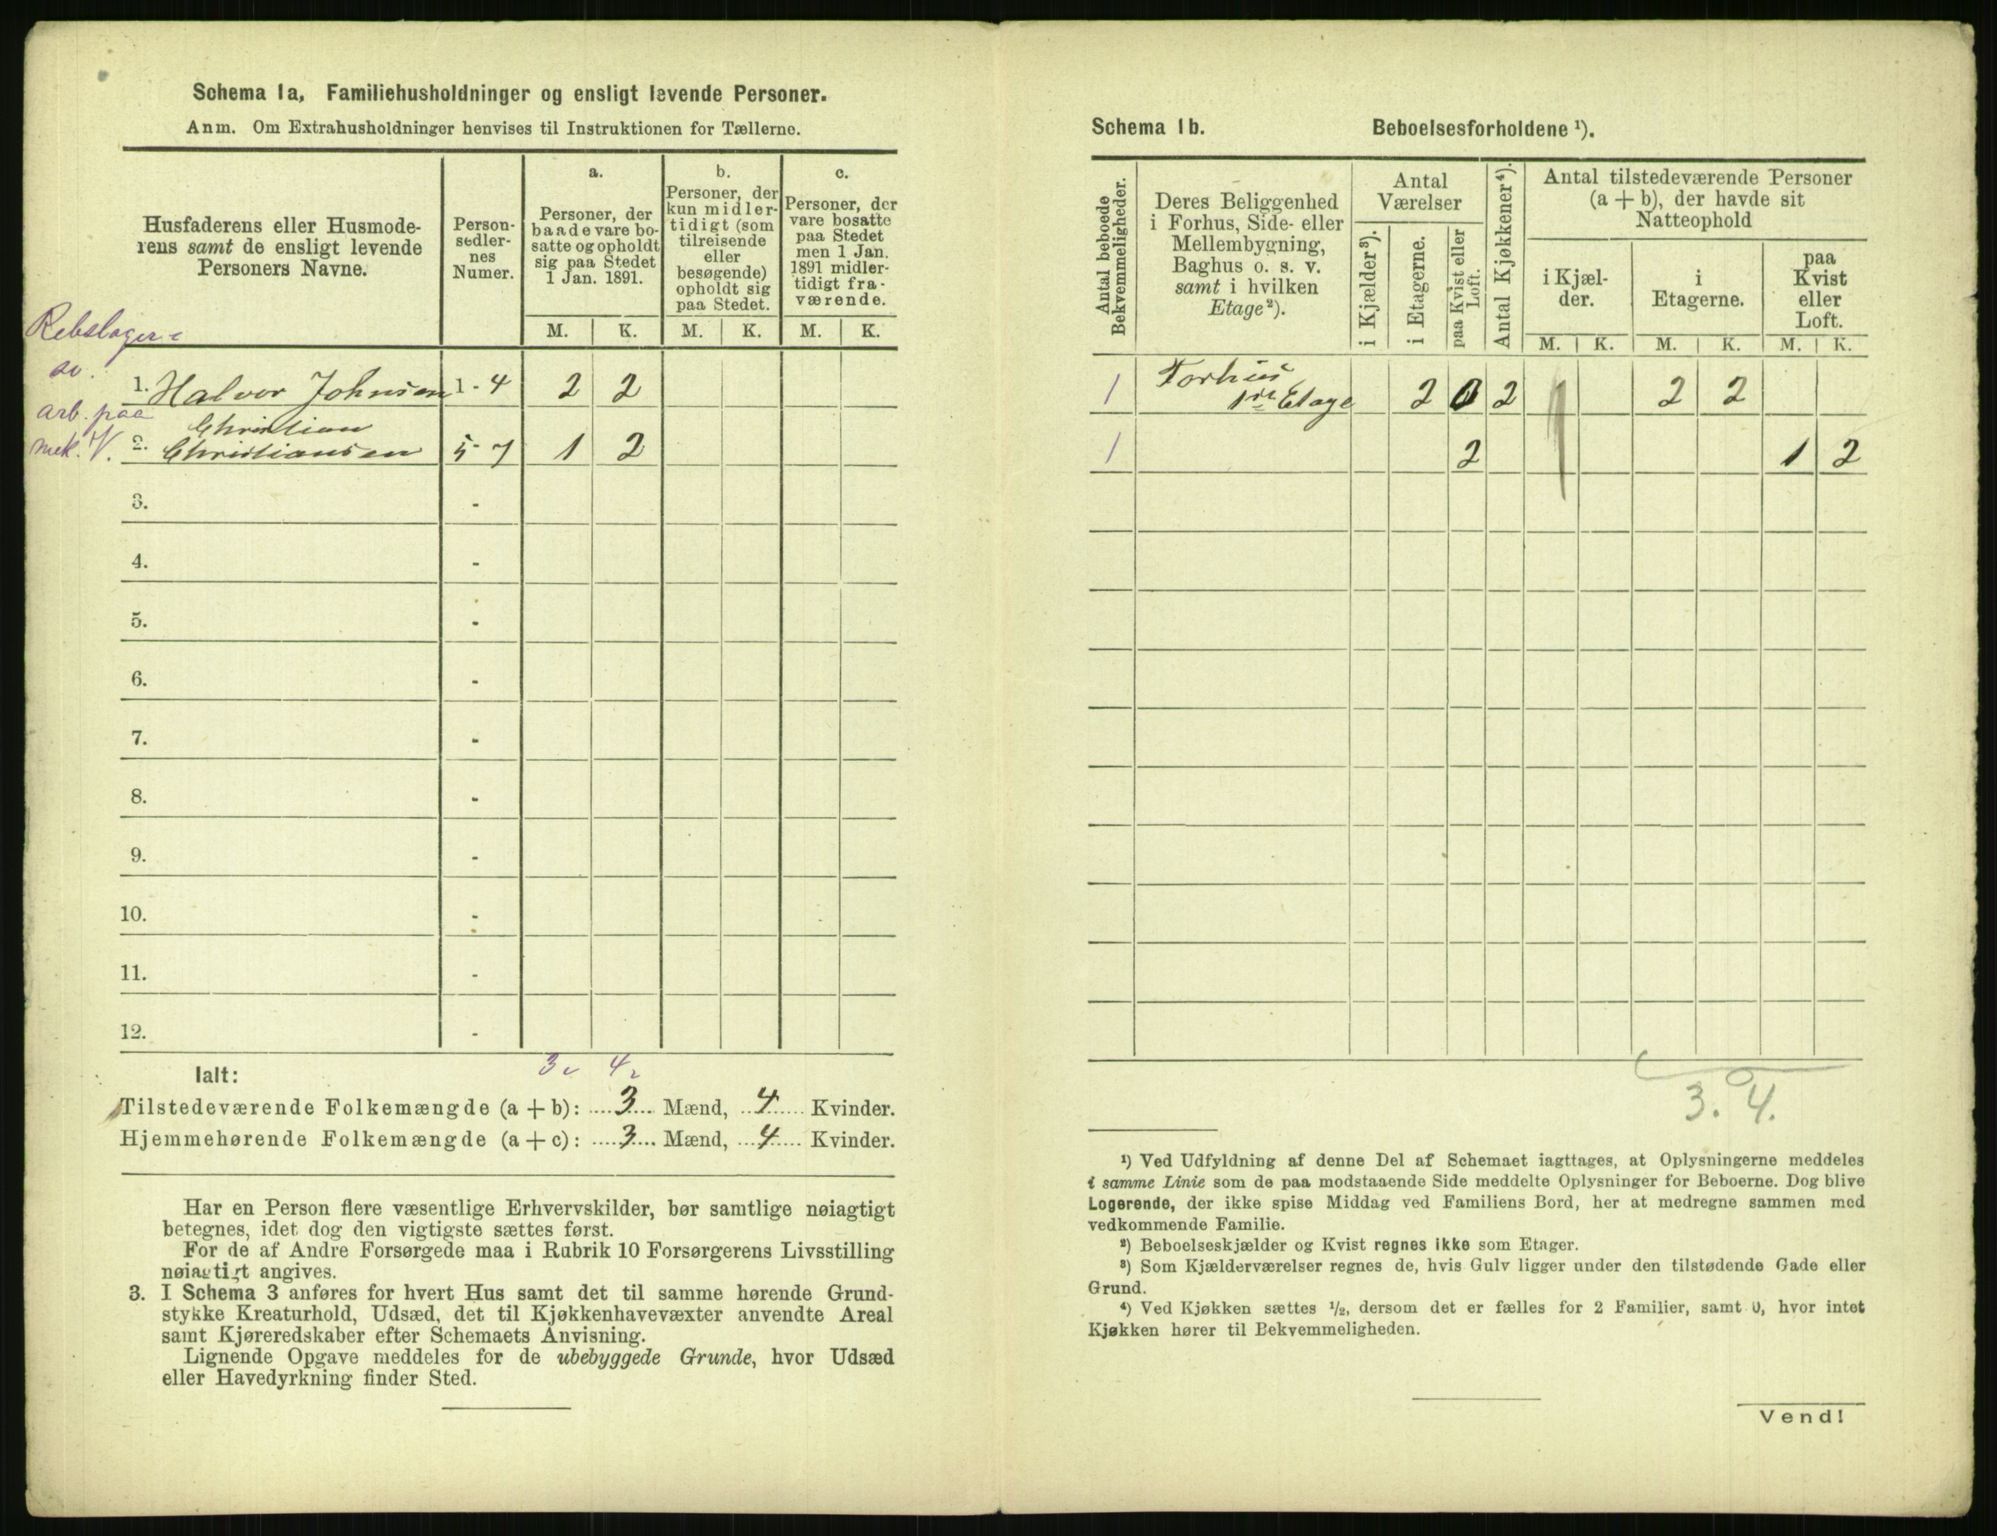 Schema 1a, Familiehusholdninger og ensligt levende Personer.
Anm. Om Extrahusholdninger henvises til Instruktionen for Tællerne.
Husfaderens eller Husmode-
rens samt de ensligt levende
Personers Navne.
Person-
sedler-
nes
Numer.
a.
Personer, der
baade vare bo-
satte og opholdt
sig paa Stedet
1 Jan. 1891.
b.
Personer, der
kun midler-
tidigt (som
tilreisende
eller
besøgende)
opholdt sig
paa Stedet.
c.
Personer, der
vare bosatte
paa Stedet
men 1 Jan.
1891 midler-
tidigt fra-
værende.
M. K. M. K. M. K.
Rebslager
1. Halvor Johnsen 1 - 4 2 2
arb. paa
mek. V.
Christian
2. Christiansen 5 - 7 1 2
3. -
4. -
5. -
6. -
7. -
8. -
9. -
10. -
11. -
12. -
3 4
Ialt:
Tilstedeværende Folkemængde (a + b): 3 Mænd, 4 Kvinder.
Hjemmehørende Folkemængde (a + c): 3 Mænd, 4 Kvinder.
Har en Person flere væsentlige Erhvervskilder, bør samtlige nøiagtigt
betegnes, idet dog den vigtigste sættes først.
For de af Andre Forsørgede maa i Rubrik 10 Forsørgerens Livsstilling
nøiagtigt angives.
3. I Schema 3 anføres for hvert Hus samt det til samme hørende Grund-
stykke Kreaturhold, Udsæd, det til Kjøkkenhavevæxter anvendte Areal
samt Kjøreredskaber efter Schemaets Anvisning.
Lignende Opgave meddeles for de ubebyggede Grunde, hvor Udsæd
eller Havedyrkning finder Sted.
Schema 1b. Beboelsesforholdene ¹).
Antal beboede
Bekvemmeligheder.
Deres Beliggenhed
i Forhus, Side- eller
Mellembygning,
Baghus o. s. v.
samt i hvilken
Etage ²).
Antal
Værelser
i Kjælder ³).
i Etagerne.
paa Kvist eller
Loft.
Antal Kjøkkener ⁴).
Antal tilstedeværende Personer
(a + b), der havde sit
Natteophold
i Kjæl-
der.
i
Etagerne.
paa
Kvist
eller
Loft.
M. K. M. K. M. K.
1 Forhus
1ste Etage 2 0 2 2 2
1 2 1 2
3. 4.
¹) Ved Udfyldning af denne Del af Schemaet iagttages, at Oplysningerne meddeles
i samme Linie som de paa modstaaende Side meddelte Oplysninger for Beboerne. Dog blive
Logerende, der ikke spise Middag ved Familiens Bord, her at medregne sammen med
vedkommende Familie.
²) Beboelseskjælder og Kvist regnes ikke som Etager.
³) Som Kjælderværelser regnes de, hvis Gulv ligger under den tilstødende Gade eller
Grund.
⁴) Ved Kjøkken sættes ½, dersom det er fælles for 2 Familier, samt 0, hvor intet
Kjøkken hører til Bekvemmeligheden.
Vend!